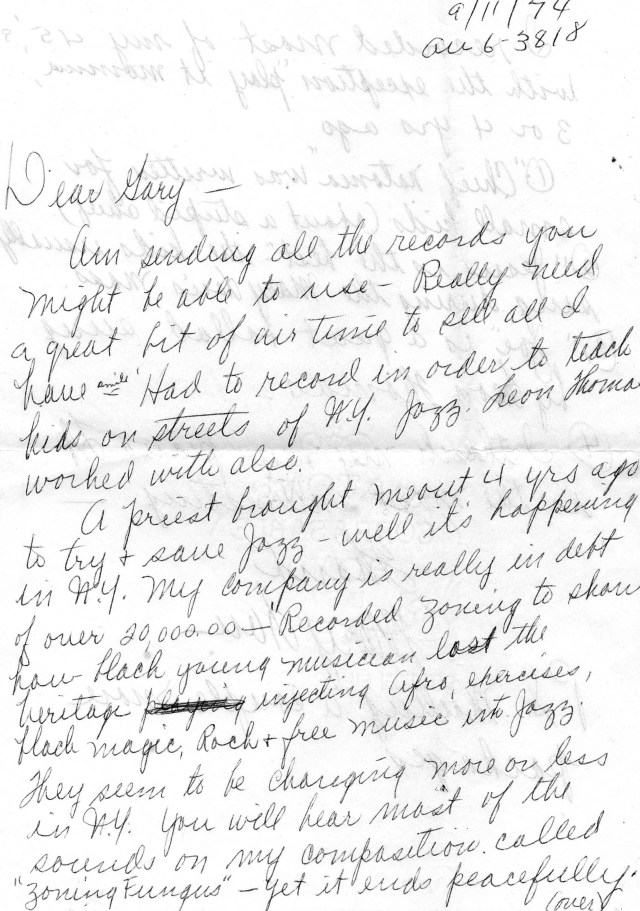 9/11/74
AU 6-3818
Dear Gary —
Am sending all the records you
might be able to use — Really need
a great bit of air time to sell all I
have smile Had to record in order to teach
kids on streets of N.Y. Jazz. Leon Thomas
worked with also.
A priest brought me out 4 yrs ago
to try + save Jazz — well it's happening
in N.Y. My company is really in debt
of over 20,000.00 — Recorded Zoning to show
how black young musician lost the
heritage injecting Afro, exercises,
black magic, Rock + free music into Jazz.
They seem to be changing more or less
in N.Y. You will hear most of the
sounds on my composition called
"Zoning Fungus" — yet it ends peacefully.
(over)